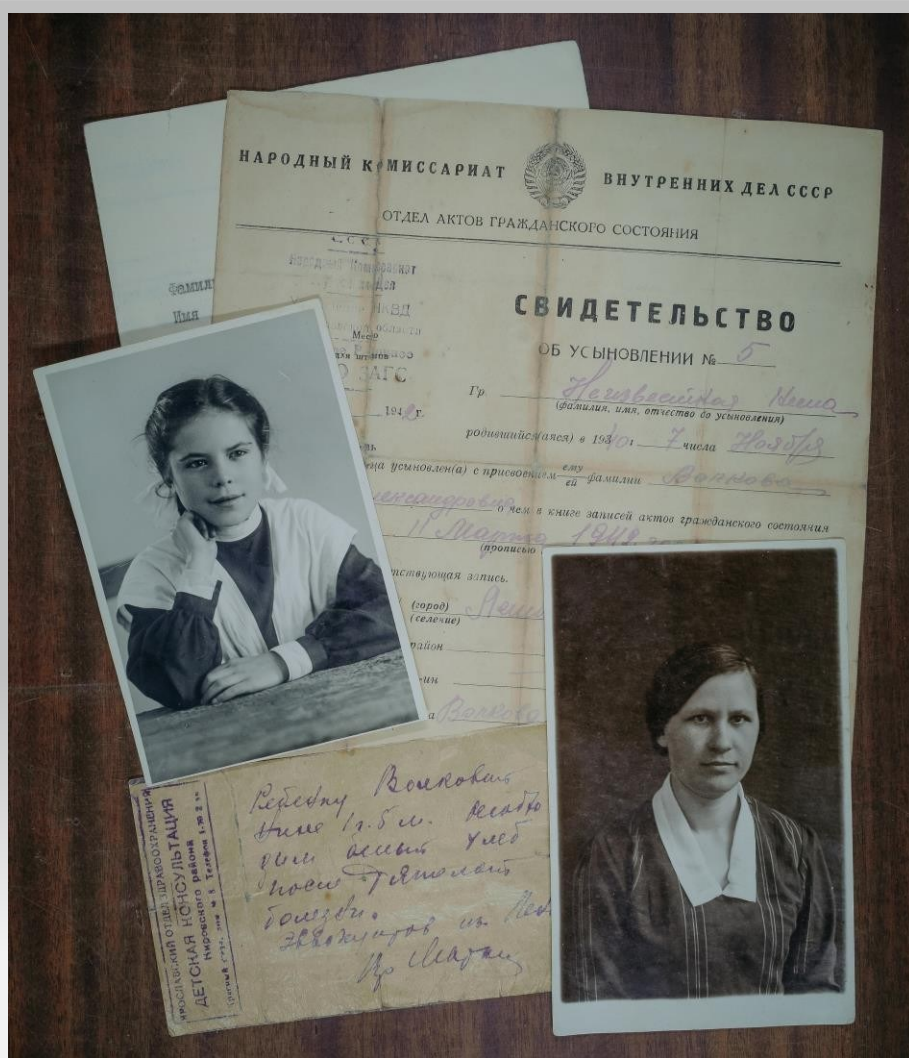 НАРОДНЫЙ КОМИССАРИАТ ВНУТРЕННИХ ДЕЛ СССР
ОТДЕЛ АКТОВ ГРАЖДАНСКОГО СОСТОЯНИЯ
СССР
Народный Комиссариат
НКВД
области
Место
для штампов
ЗАГС
Фамил
Имя
СВИДЕТЕЛЬСТВО
ОБ УСЫНОВЛЕНИИ № 5
Гр. Неизвестная Нина
(фамилия, имя, отчество до усыновления)
1942 г.
родившийся(аяся) в 1940 г. 7 числа Ноября
усыновлен(а) с присвоением ему/ей фамилии Волкова
ександровна о чем в книге записей актов гражданского состояния
11 Марта 1942
(прописью
тствующая запись.
(город)
(селение)
район
Волкова
ЯРОСЛАВСКИЙ ОТДЕЛ ЗДРАВООХРАНЕНИЯ
ДЕТСКАЯ КОНСУЛЬТАЦИЯ
Кировского района
Телефон
Ребенку Волковой
Нине 1 г. 5 м. необхо
дим белый хлеб
после тяжелой
болезни.
Эвакуиров из